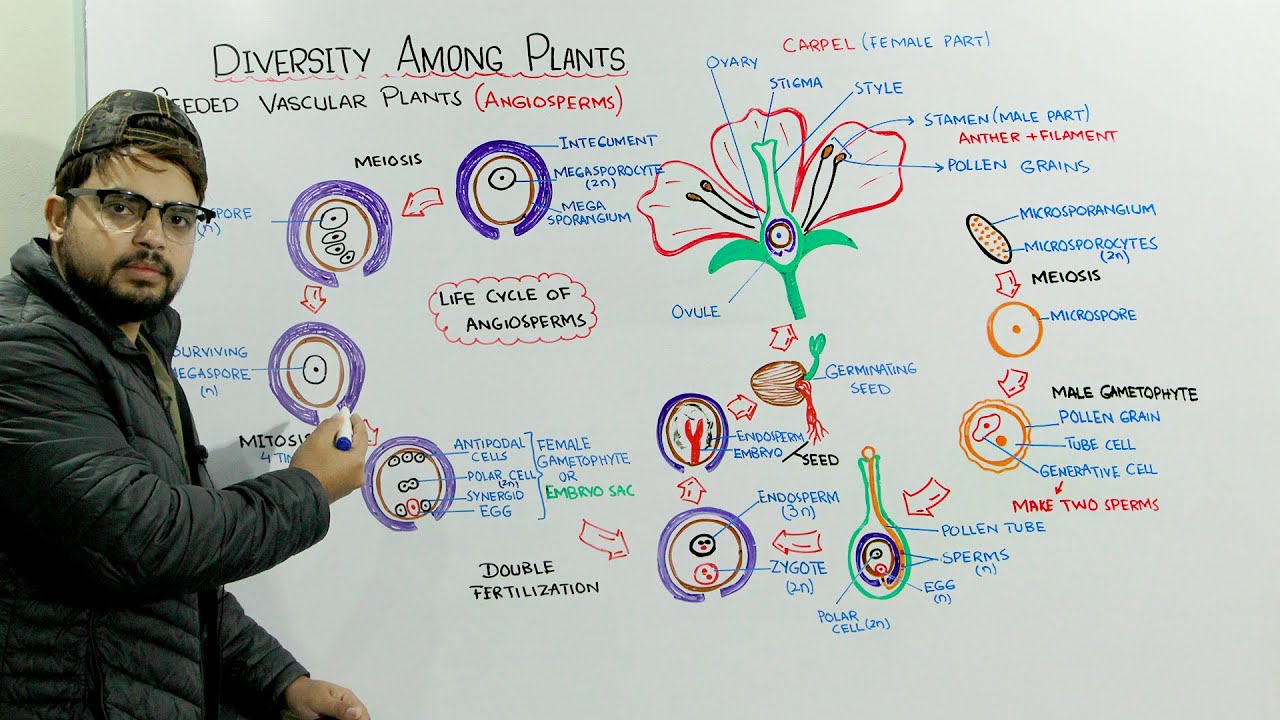 DIVERSITY AMONG PLANTS
VASCULAR PLANTS (ANGIOSPERMS)
CARPEL (FEMALE PART)
OVARY
STIGMA
STYLE
STAMEN (MALE PART)
ANTHER + FILAMENT
POLLEN GRAINS
OVULE
MEIOSIS
INTEGUMENT
MEGASPOROCYTE
(2n)
MEGA
SPORANGIUM
(n)
LIFE CYCLE OF
ANGIOSPERMS
SURVIVING
MEGASPORE
(n)
MITOSIS
4 TIM
ANTIPODAL
CELLS
POLAR CELL
(2n)
SYNERGID
EGG
FEMALE
GAMETOPHYTE
OR
EMBRYO SAC
DOUBLE
FERTILIZATION
MICROSPORANGIUM
MICROSPOROCYTES
(2n)
MEIOSIS
MICROSPORE
MALE GAMETOPHYTE
POLLEN GRAIN
TUBE CELL
GENERATIVE CELL
MAKE TWO SPERMS
POLLEN TUBE
SPERMS
(n)
EGG
(n)
POLAR
CELL (2n)
ENDOSPERM
(3n)
ZYGOTE
(2n)
ENDOSPERM
EMBRYO
SEED
GERMINATING
SEED